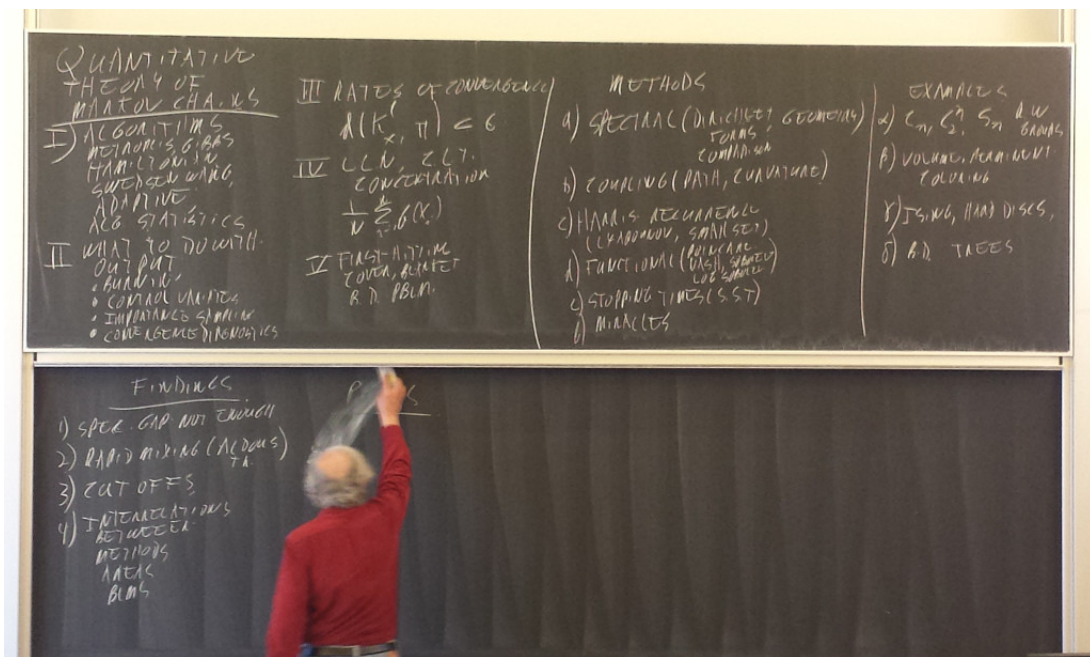 QUANTITATIVE
THEORY OF
MARKOV CHAINS
I) ALGORITHMS
METROPOLIS, GIBBS
HAMILTONIAN
SWENDSEN WANG,
ADAPTIVE,
ALG STATISTICS
II WHAT TO DO WITH
OUTPUT
• BURNIN,
• CONTROL VARIATES
• IMPORTANCE SAMPLING
• CONVERGENCE DIAGNOSTICS
III RATES OF CONVERGENCE
d(K_x^l, π) < ε
IV LLN, CLT,
CONCENTRATION
V FIRST HITTING
COVER, BLANKET
B.D. PBLM.
METHODS
a) SPECTRAL (DIRICHLET FORMS, GEOMETRY)
COMPARISON
b) COUPLING (PATH, CURVATURE)
c) HARRIS RECURRENCE
(LYAPUNOV, SMALL SET)
d) FUNCTIONAL (POINCARE
NASH, SOBOLEV
LOG SOBOLEV
e) STOPPING TIMES (S.S.T)
f) MIRACLES
EXAMPLES
α) C_n, C_2^n, S_n R.W
GROUPS
β) VOLUME, PERMANENT
COLORING
γ) ISING, HARD DISCS,
δ) B.D. TREES
FINDINGS
1) SPEC. GAP NOT ENOUGH
2) RAPID MIXING (ALDOUS)
3) CUT OFFS
4) INTERRELATIONS
BETWEEN
METHODS
AREAS